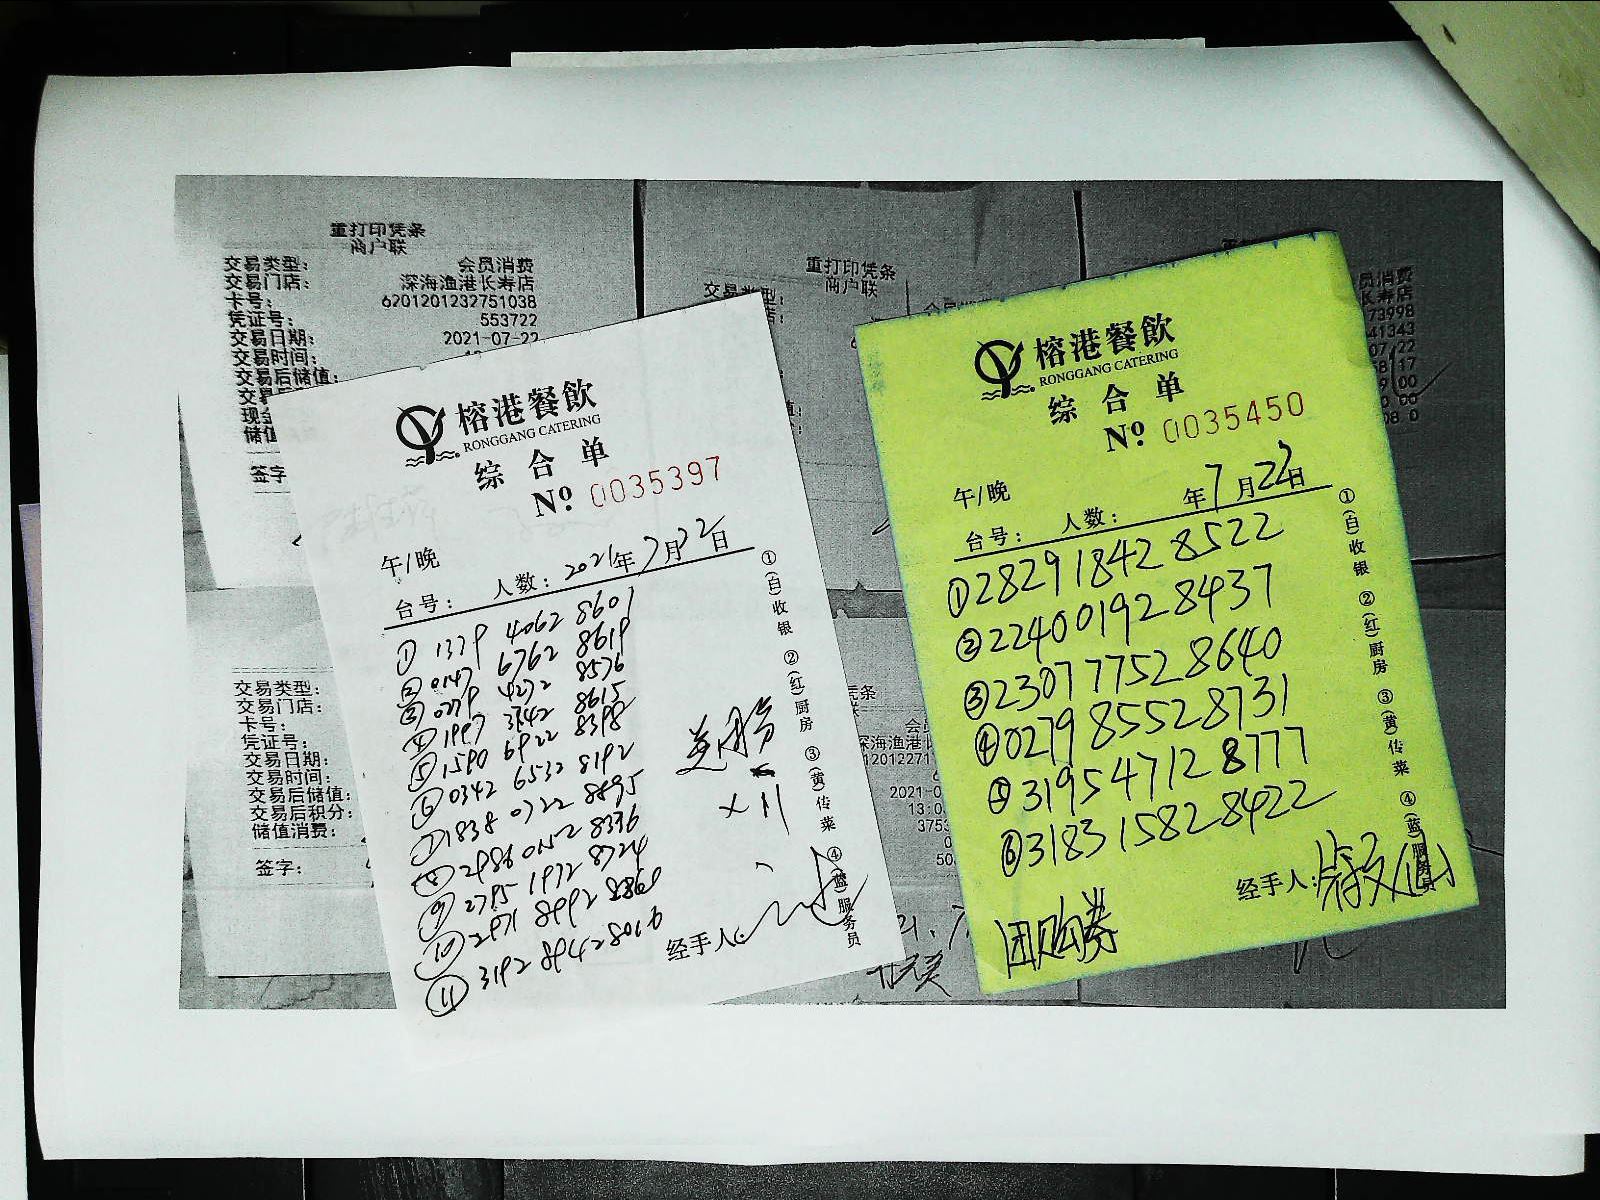 重打印凭条
商户联
交易类型： 会员消费
交易门店： 深海渔港长寿店
卡号： 6201201232751038
凭证号： 553722
交易日期： 2021-07-22
交易时间：
交易后储值：
现金
储值
签字
重打印凭条
商户联
交易类型：
员消费
长寿店
73998
41343
交易类型：
交易门店：
卡号：
凭证号：
交易日期：
交易时间：
交易后储值：
交易后积分：
储值消费：
签字：
凭条
深海渔港
2021-0
13:0
榕港餐飲
RONGGANG CATERING
综合单
Nº 0035397
午/晚
台号： 人数： 2021年7月22日
① 1379 4062 8601
② 0147 6762 8619
③ 0279 4272 8576
④ 1997 3742 8615
⑤ 1590 6922 8398
⑥ 0342 6532 8192
⑦ 1838 0722 8895
⑧ 2986 0152 8336
⑨ 2795 1972 8724
⑩ 2971 8992 8860
⑪ 3192 8942 8016
美团券
×11
经手人：
①(白)收银 ②(红)厨房 ③(黄)传菜 ④(蓝)服务员
榕港餐飲
RONGGANG CATERING
综合单
Nº 0035450
午/晚
台号： 人数： 年7月22日
①2829 1842 8522
②2240 0192 8437
③2307 7752 8640
④0279 8552 8731
⑤3195 4712 8777
⑥3183 1582 8422
经手人：
团购券
①(白)收银 ②(红)厨房 ③(黄)传菜 ④(蓝)服务员